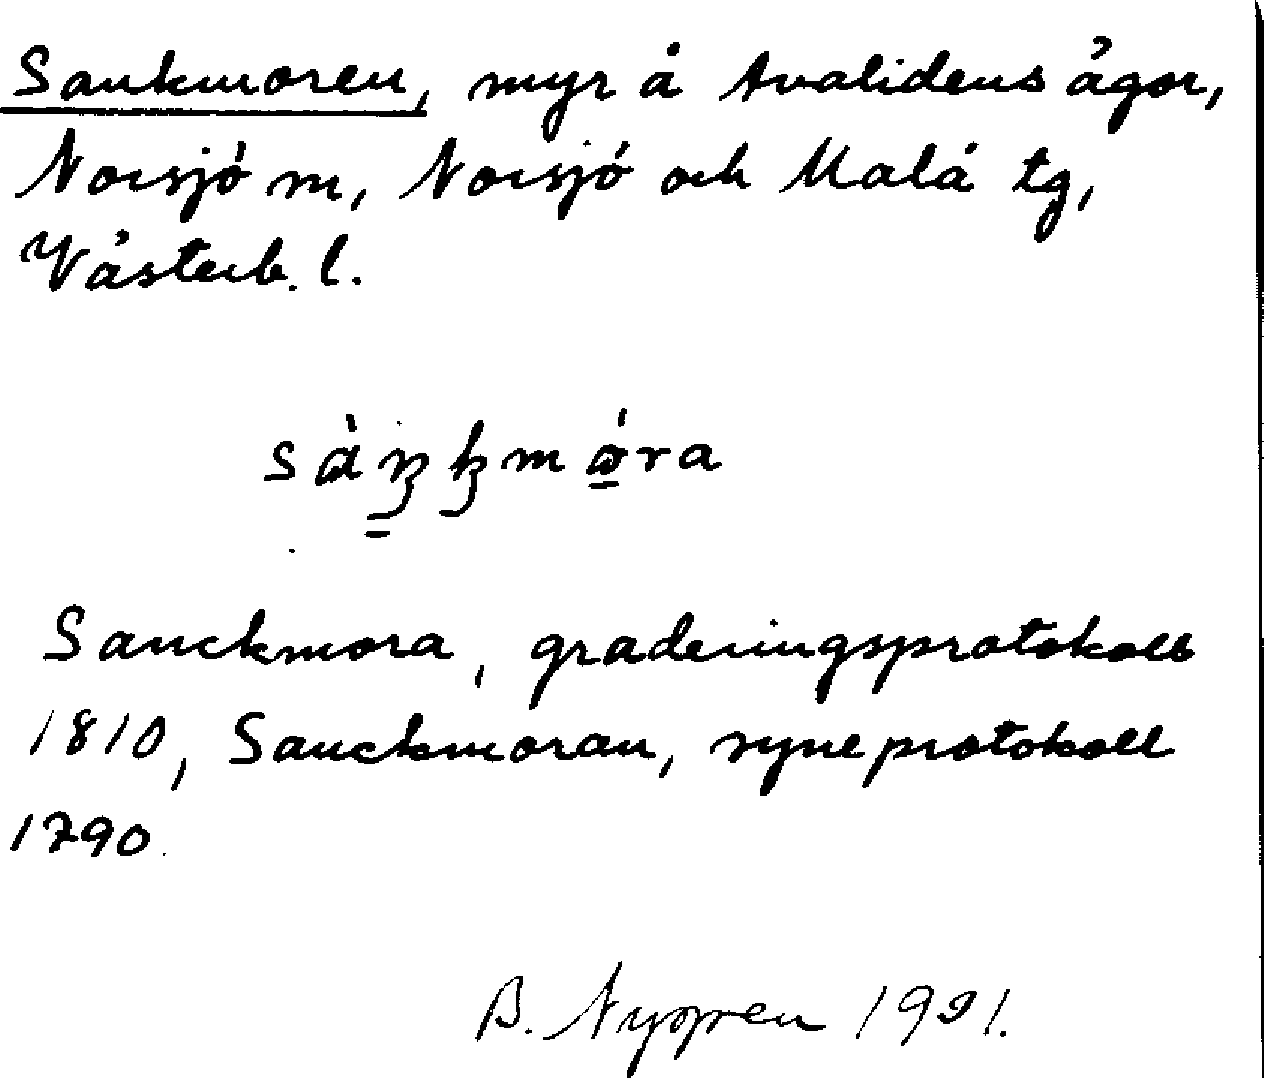 Sankmoren, myr å Avalidens ägor,
Norsjö sn, Norsjö och Malå tg,
Västerb. l.
Sanckmora, graderingsprotokoll
1810, Sanckmoran, syneprotokoll
1790.
B. Nygren 1931.